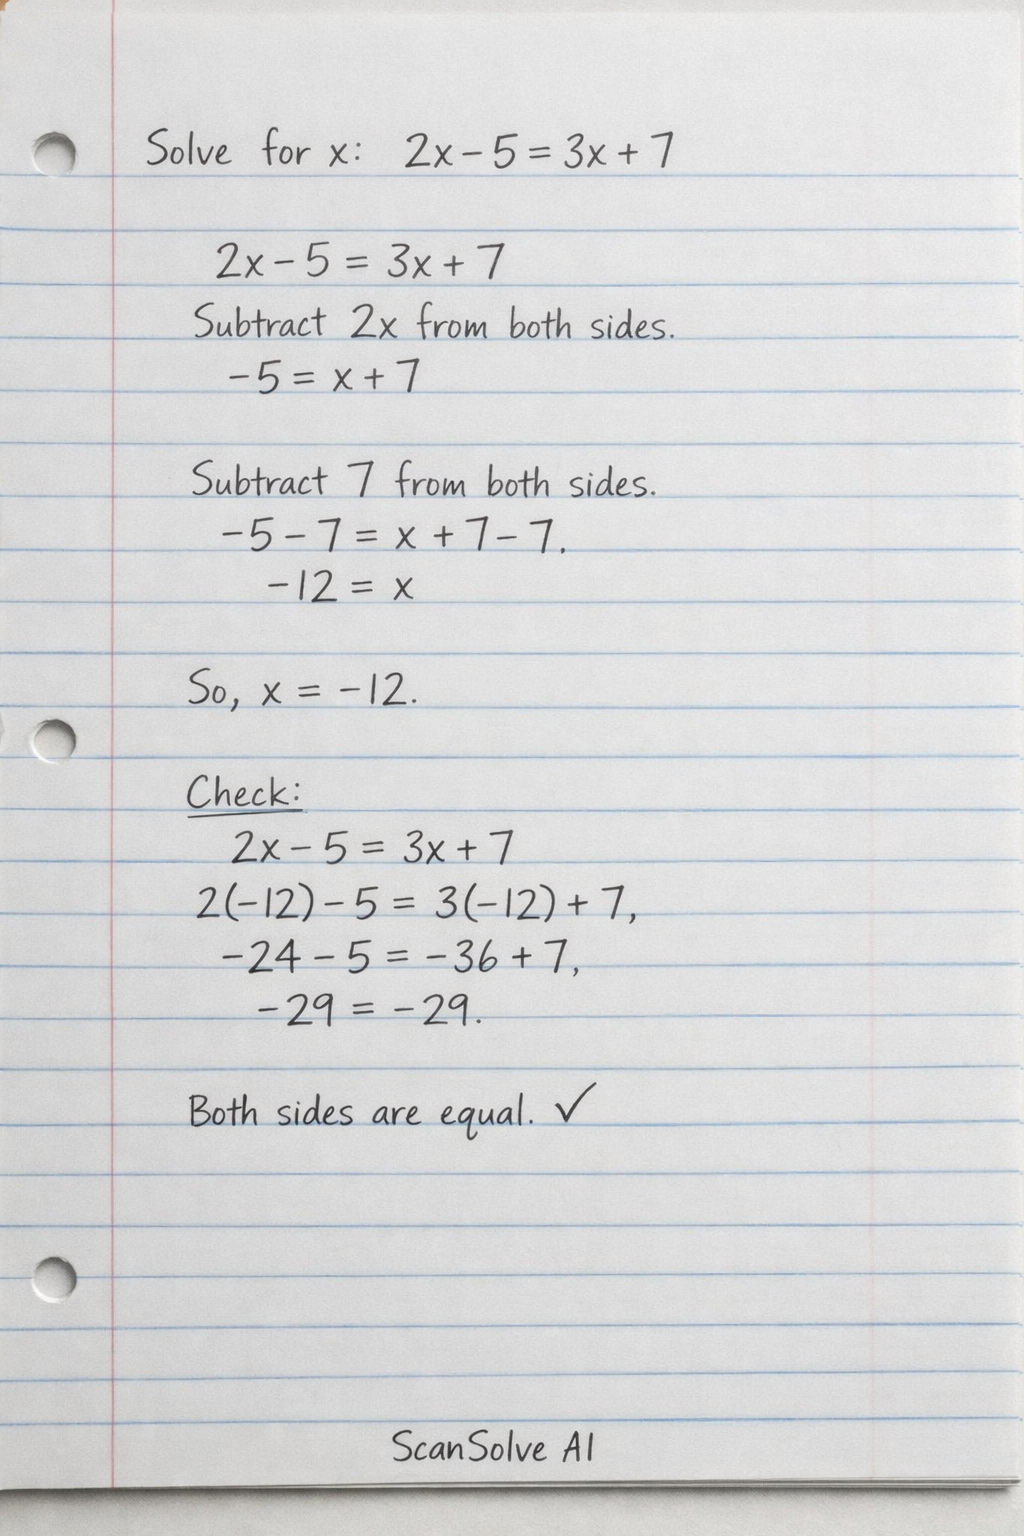 Solve for x: 2x - 5 = 3x + 7
2x - 5 = 3x + 7
Subtract 2x from both sides.
-5 = x + 7
Subtract 7 from both sides.
-5 - 7 = x + 7 - 7.
-12 = x
So, x = -12.
Check:
2x - 5 = 3x + 7
2(-12) - 5 = 3(-12) + 7,
-24 - 5 = -36 + 7,
-29 = -29.
Both sides are equal. ✓
ScanSolve AI